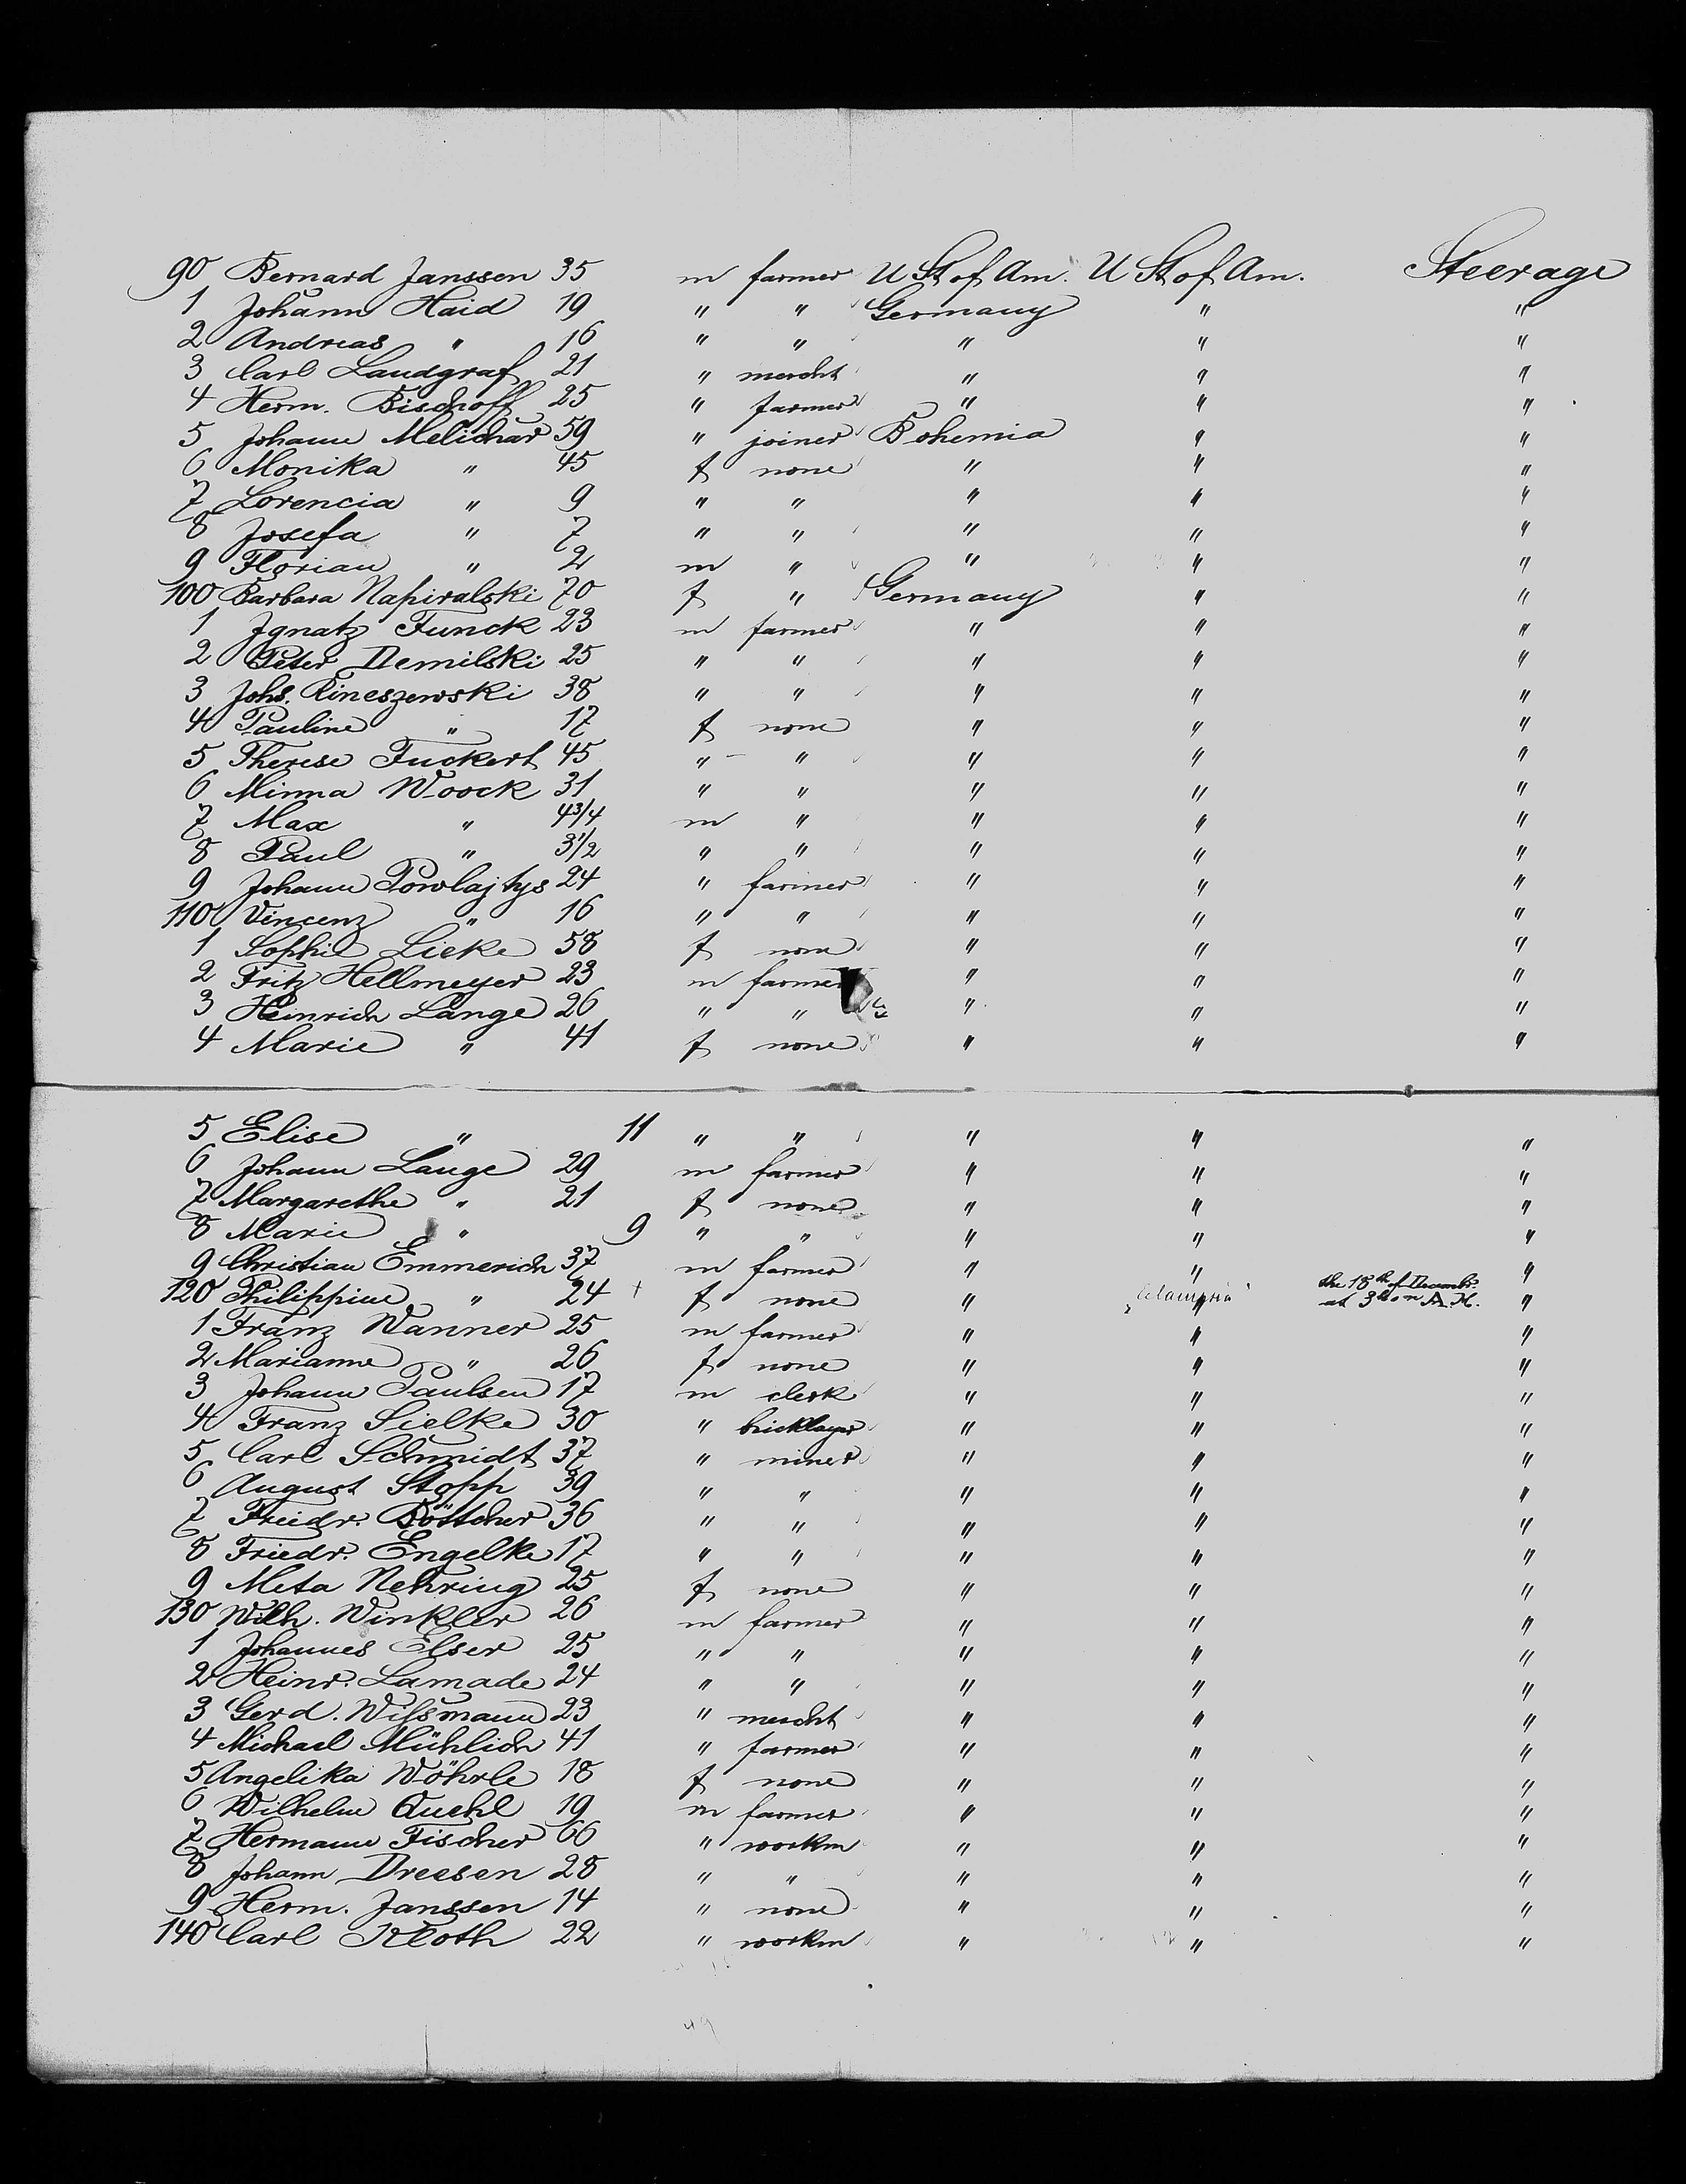 90 Bernard Janssen 35 m farmer U St of Am. U St of Am. Steerage
1 Johann Haid 19 " " Germany " "
2 Andreas " 16 " " " " "
3 Carl Landgraf 21 " mercht " " "
4 Herm. Bischoff 25 " farmer " " "
5 Johann Melichar 59 " joiner Bohemia " "
6 Monika " 45 f none " " "
7 Lorencia " 9 " " " " "
8 Josefa " 7 " " " " "
9 Florian " 2 m " " " "
100 Barbara Napiralski 70 f " Germany " "
1 Ignatz Funck 23 m farmer " " "
2 Peter Demilski 25 " " " " "
3 Johs. Rineszewski 38 " " " " "
4 Pauline " 17 f none " " "
5 Therese Fuckert 45 " " " " "
6 Minna Woock 31 " " " " "
7 Max " 4 3/4 m " " " "
8 Paul " 3 1/2 " " " " "
9 Johann Powlajtys 24 " farmer " " "
110 Vincenz " 16 " " " " "
1 Sophie Lieke 58 f none " " "
2 Fritz Hellmeyer 23 m farmer " " "
3 Heinrich Lange 26 " " " " "
4 Marie " 41 f none " " "
5 Elise " 11 " " " " "
6 Johann Lange 29 m farmer " " "
7 Margarethe " 21 f none " " "
8 Marie " 9 " " " " "
9 Christian Emmerich 37 m farmer " " "
120 Philippine " 24 + f none " " the 18th of Decembr. "
at 3 A.M.
1 Franz Wanner 25 m farmer " " "
2 Marianne " 26 f none " " "
3 Johann Paulsen 17 m clerk " " "
4 Franz Sielke 30 " bricklayer " " "
5 Carl Schmidt 37 " miner " " "
6 August Stopp 39 " " " " "
7 Friedr. Böttcher 36 " " " " "
8 Friedr. Engelke 17 " " " " "
9 Meta Nehring 25 f none " " "
130 Wilh. Winkler 26 m farmer " " "
1 Johannes Elser 25 " " " " "
2 Heinr. Lamade 24 " " " " "
3 Gerd. Wissmann 23 " mercht " " "
4 Michael Mühlich 41 " farmer " " "
5 Angelika Wöhrle 18 f none " " "
6 Wilhelm Quehl 19 m farmer " " "
7 Hermann Fischer 66 " workm " " "
8 Johann Dreesen 28 " " " " "
9 Herm. Janssen 14 " none " " "
140 Carl Kloth 22 " workm " " "